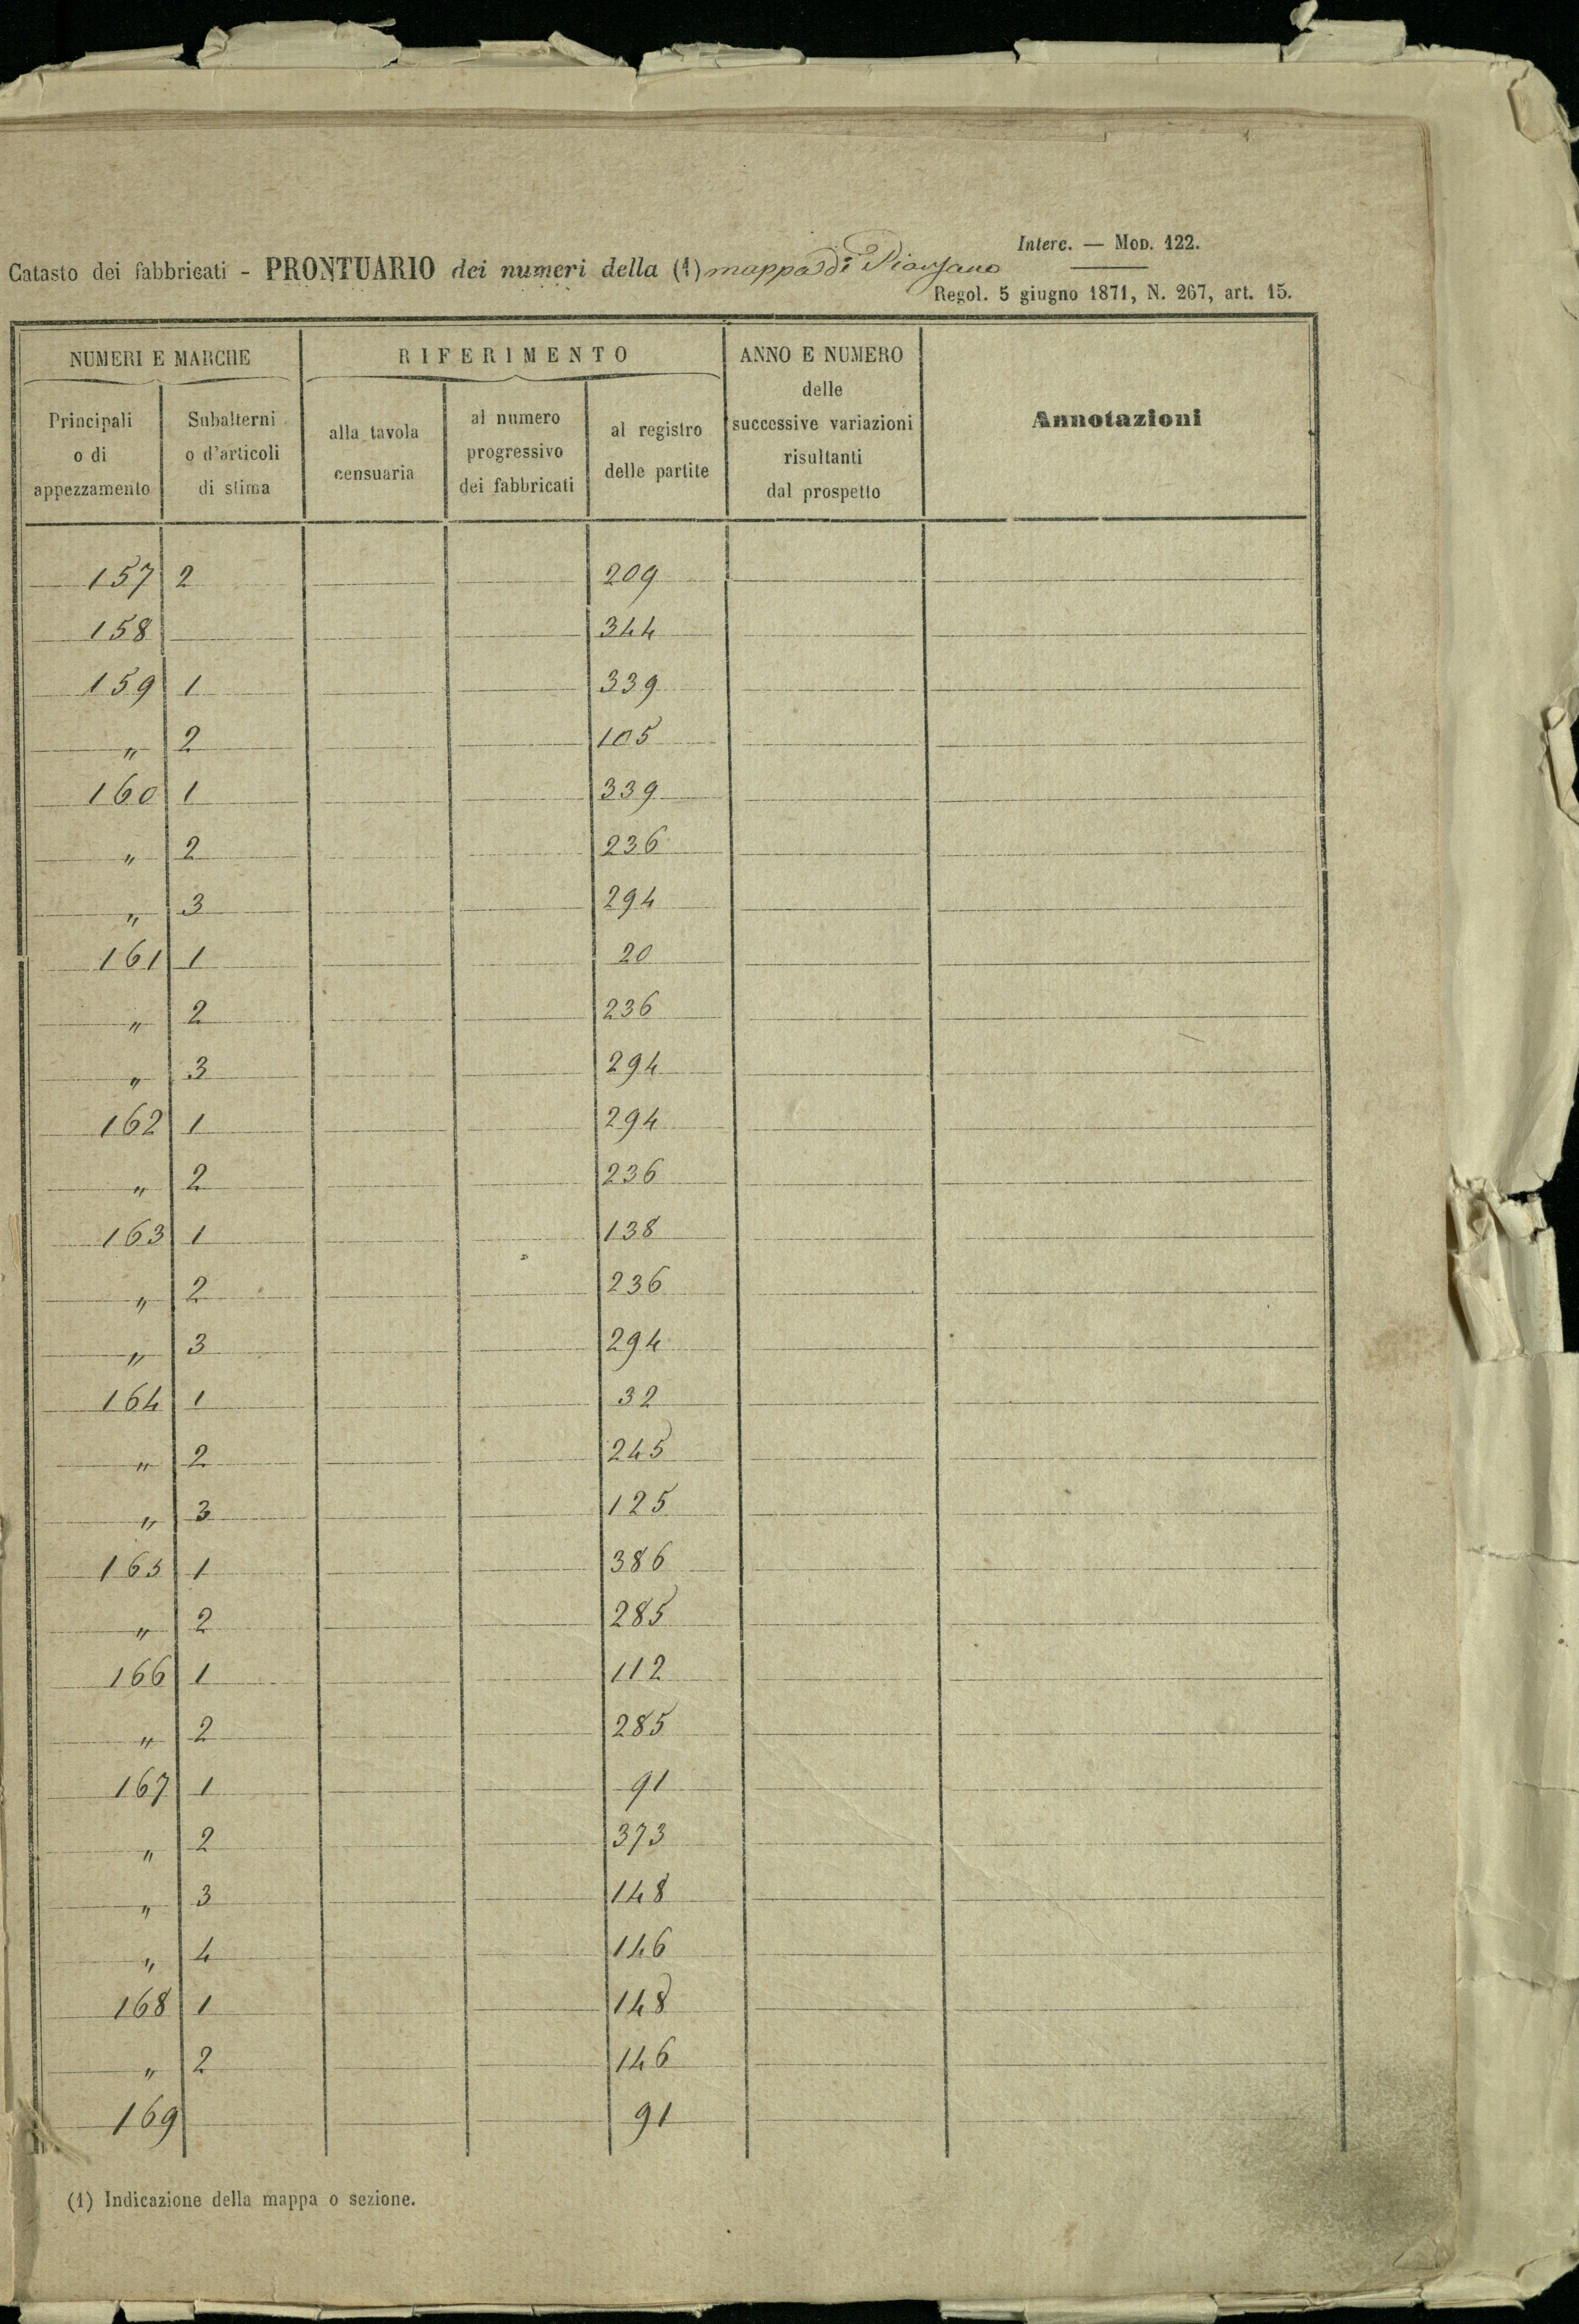 Interc. — Mod. 122.
Catasto dei fabbricati - PRONTUARIO dei numeri della (1) mappa di Piansano
Regol. 5 giugno 1871, N. 267, art. 15.
NUMERI E MARCHE
Principali
o di
appezzamento
Subalterni
o d'articoli
di stima
RIFERIMENTO
alla tavola
censuaria
al numero
progressivo
dei fabbricati
al registro
delle partite
ANNO E NUMERO
delle
successive variazioni
risultanti
dal prospetto
Annotazioni
157 2 209
158 344
159 1 339
" 2 105
160 1 339
" 2 236
" 3 294
161 1 20
" 2 236
" 3 294
162 1 294
" 2 236
163 1 138
" 2 236
" 3 294
164 1 32
" 2 245
" 3 125
165 1 386
" 2 285
166 1 112
" 2 285
167 1 91
" 2 373
" 3 148
" 4 146
168 1 148
" 2 146
169 91
(1) Indicazione della mappa o sezione.